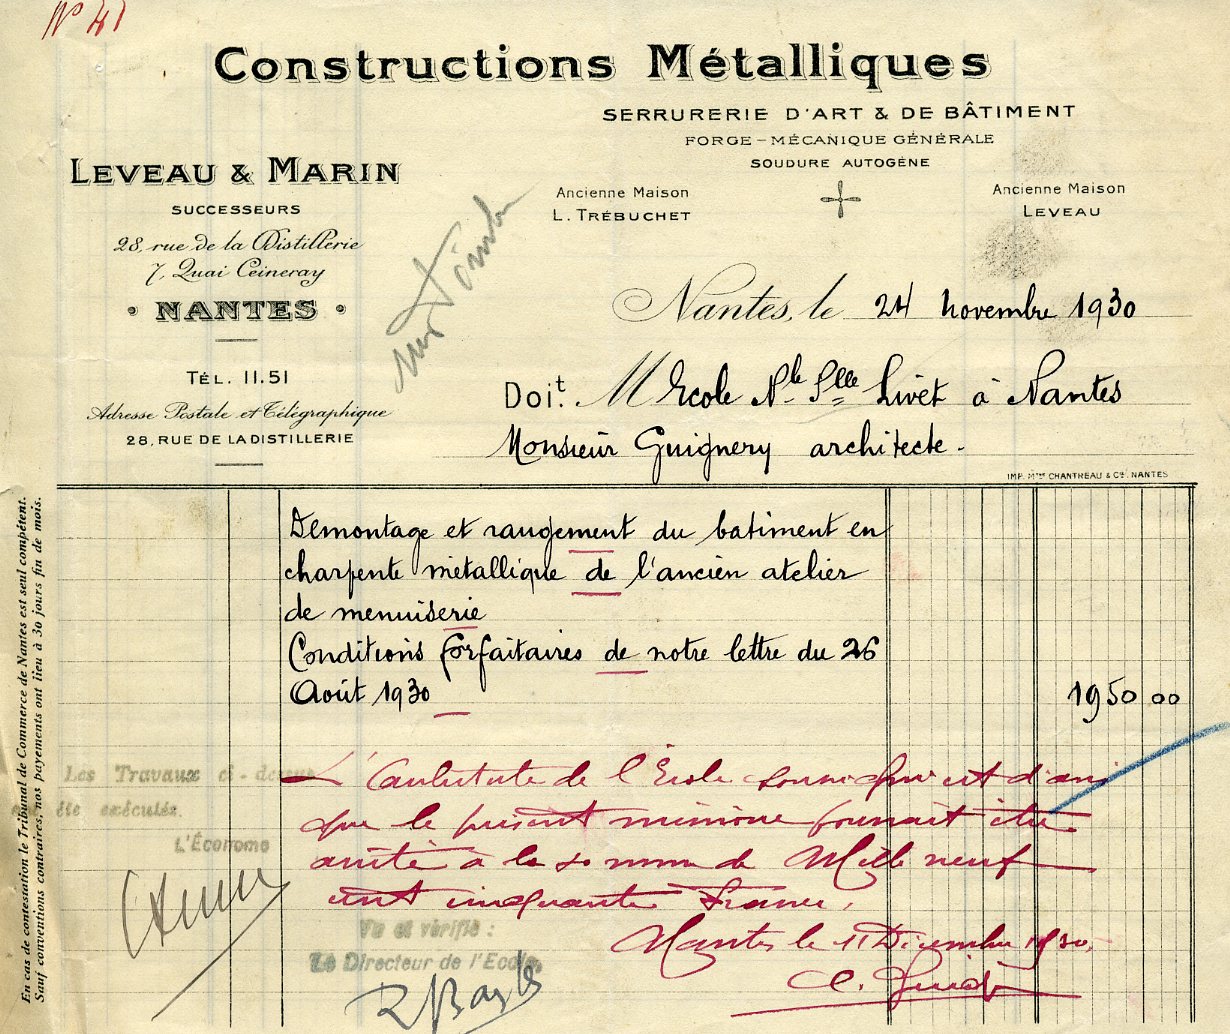 N° 41
Constructions Métalliques
SERRURERIE D'ART & DE BÂTIMENT
FORGE - MÉCANIQUE GÉNÉRALE
SOUDURE AUTOGÈNE
LEVEAU & MARIN
SUCCESSEURS
28, rue de la Distillerie
7, Quai Ceineray
• NANTES •
TÉL. 11.51
Adresse Postale et Télégraphique
28, RUE DE LA DISTILLERIE
Ancienne Maison
L. TRÉBUCHET
Ancienne Maison
LEVEAU
Nantes, le 24 novembre 1930
Doit: M Ecole Nle Plle Livet à Nantes
Monsieur Guignery architecte.
IMP. Mme CHANTREAU & Cie. NANTES
Démontage et rangement du batiment en
charpente métallique de l'ancien atelier
de menuiserie
Conditions forfaitaires de notre lettre du 26
Août 1930 1950 00
Les Travaux ci-dessus
ont été exécutés.
L'Économe
L'Architecte de l'Ecole soussigné est d'avis
que le présent mémoire pourrait être
arrêté à la somme de Mille neuf
cent cinquante francs.
Nantes le 11 Décembre 1930.
Vu et vérifié :
Le Directeur de l'Ecole,
En cas de contestation le Tribunal de Commerce de Nantes est seul compétent.
Sauf conventions contraires, nos payements ont lieu à 30 jours fin de mois.